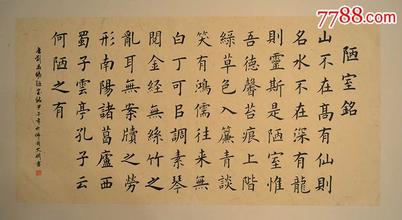 7788.com
陋室銘
山不在高有仙則
名水不在深有龍
則靈斯是陋室惟
吾德馨苔痕上階
綠草色入簾青談
笑有鴻儒往來無
白丁可以調素琴
閱金經無絲竹之
亂耳無案牘之勞
形南陽諸葛廬西
蜀子雲亭孔子云
何陋之有
唐劉禹錫陋室銘